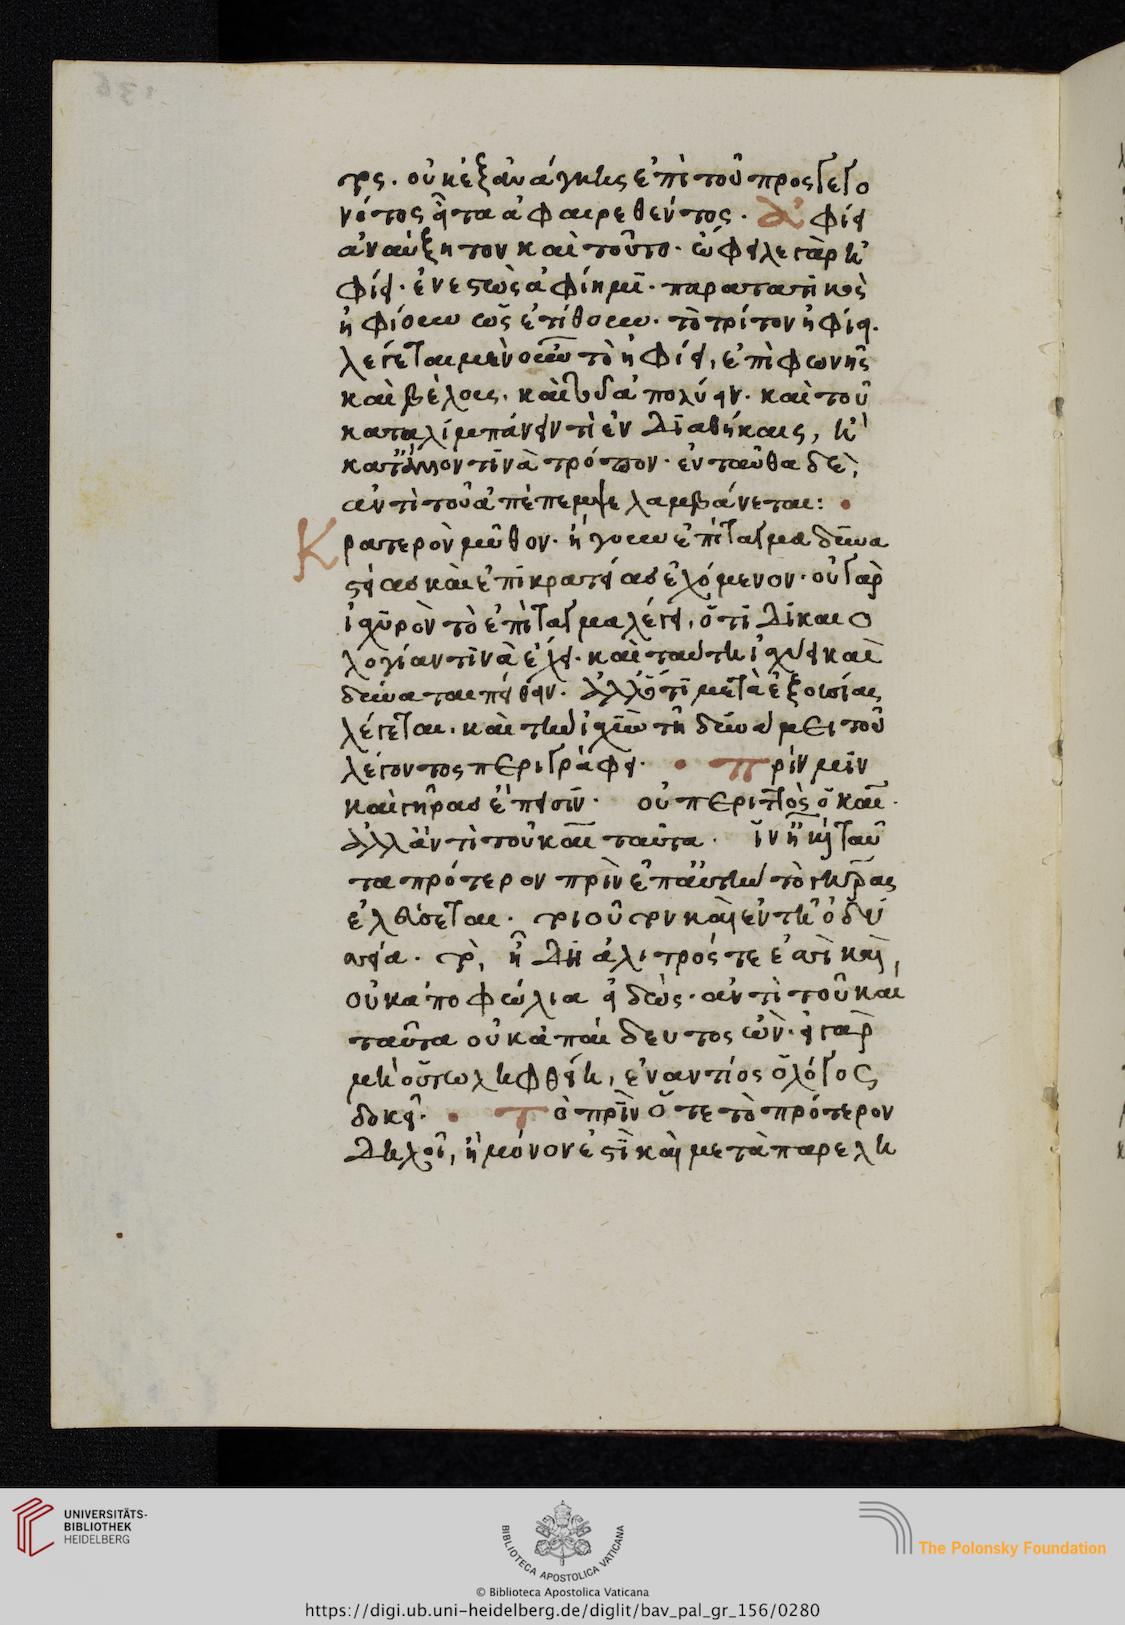 τρς. οὐκ ἐξ ἀνάγκης ἐπὶ τοῦ προσγεγο
νότος ἢ τὰ ἀφαιρεθέντος. ἀφίει
ἀναύξητον καὶ τοῦτο. ὤφειλε γὰρ ἠ
φίει. ἐνεστὼς ἀφίημι. παρατατικὸς
ἠφίουν ὡς ἐτίθουν. τὸ τρίτον ἠφίει.
λέγεται μὲν οὖν τὸ ἠφίει, ἐπὶ φωνῆς
καὶ βέλους. καὶ τοῦ ἀπολύειν. καὶ τοῦ
καταλιμπάνειν τι ἐν διαθήκαις, ἢ
κατ' ἄλλον τινὰ τρόπον. ἐνταῦθα δὲ,
ἀντὶ τοῦ ἀπέπεμψε λαμβάνεται:
Κρατερὸν μῦθον. ἤγουν ἐπίταγμα δυνα
στείας καὶ ἐπικρατείας ἐχόμενον. οὐ γὰρ
ἰσχυρὸν τὸ ἐπίταγμα λέγει, ὅτι δικαιο
λογίαν τινὰ ἔχει. καὶ ταύτῃ ἰσχύει καὶ
δύναται πείθειν. ἀλλ' ὅτι μετὰ ἐξουσίας
λέγεται. καὶ τὴν ἰσχὺν τῇ δυνάμει τοῦ
λέγοντος περιγράφει. πρίν μιν
καὶ γῆρας ἔπεισιν. οὐ περιττὸς ὁ καί.
ἀλλ' ἀντὶ τοῦ καὶ ταῦτα. ἵν' ᾖ καὶ ταῦ
τα πρότερον πρὶν ἐπ' αὐτὴν τὸ γῆρας
ἐλεύσεται. τοιοῦτον καὶ ἐν τῇ ὀδυ
σσεία. τὸ, ἦ δὴ ἀλιτρός τε ἐσσὶ καὶ,
οὐκ ἀποφώλια εἰδώς. ἀντὶ τοῦ καὶ
ταῦτα οὐκ ἀπαίδευτος ὤν. εἰ γὰρ
μὴ οὕτω ληφθείη, ἐναντίος ὁ λόγος
δοκεῖ. τὸ πρὶν ὅτε τὸ πρότερον
δηλοῖ, ἢ μόνον ἐστὶ καὶ μετὰ παρελη